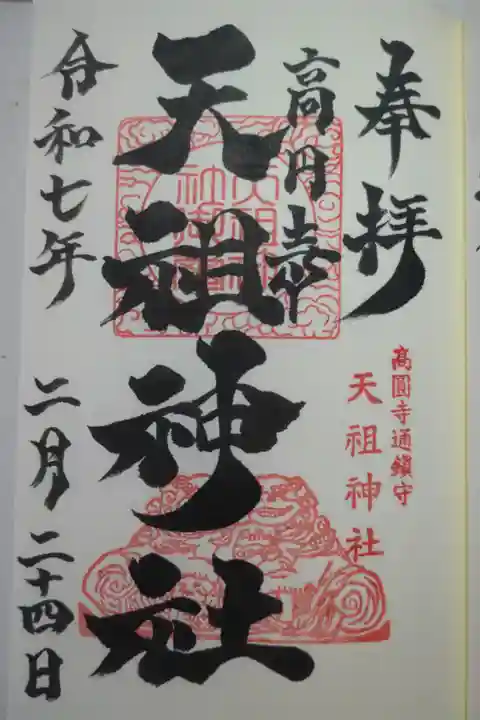 奉拝
高円寺
天祖神社
令和七年
二月二十四日
高圓寺通鎮守
天祖神社